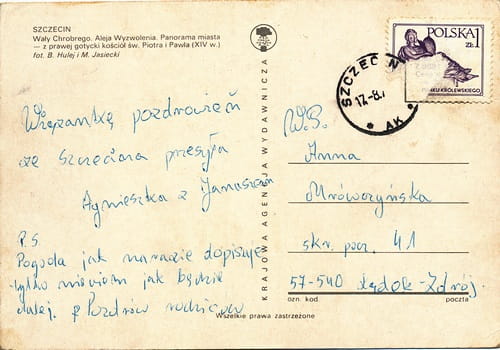 SZCZECIN
Wały Chrobrego. Aleja Wyzwolenia. Panorama miasta
— z prawej gotycki kościół św. Piotra i Pawła (XIV w.)
fot. B. Hulej i M. Jasiecki
Wiązankę pozdrowień
ze Szczecina przesyła
Agnieszka z Januszem
P.S.
Pogoda jak narazie dopisuje
tylko niewiem jak będzie
dalej. Pozdrów rodziców
KRAJOWA AGENCJA WYDAWNICZA
POLSKA
ZŁ 1
SZCZECIN
17.-8.
AK
W.P.
Anna
Mrówczyńska
skr. pocz. 41
57-540 Lądek-Zdrój.
ozn. kod
poczta
Wszelkie prawa zastrzeżone